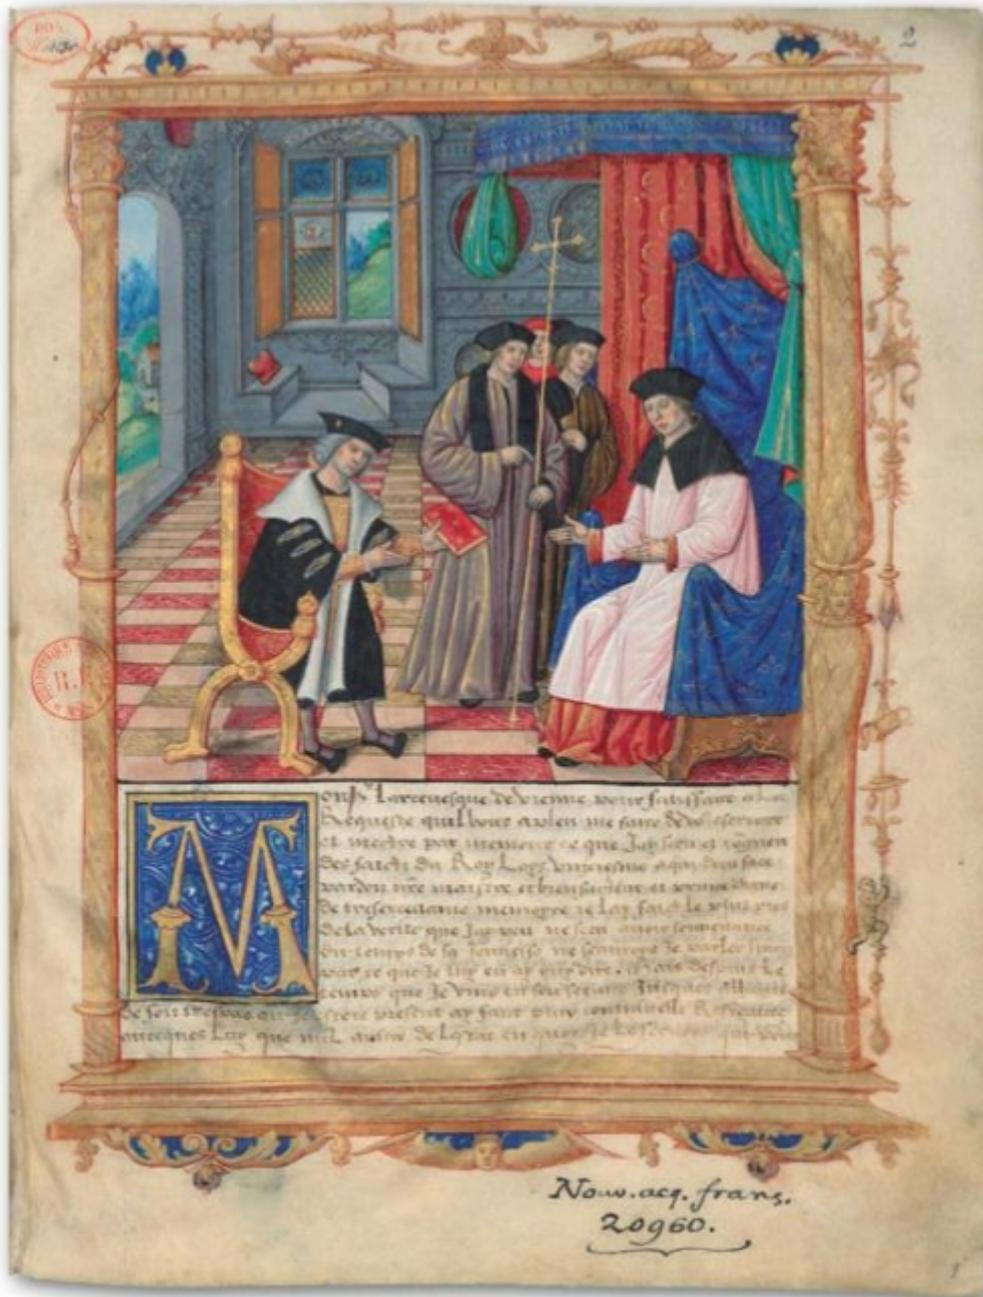 DON
2
Mons^r larcevesque de vienne pour satisfaire a la
Requeste quil vous a pleu me faire de vous escripre
et mectre par memoire ce que Jay sceu et congneu
des faictz du Roy Loys unziesme a qui dieu face
pardon n̄re maistre et bienfacteur et prince digne
de tresexcellante memoyre Je lay faict le plus pres
de la verite que Jay peu ne sceu avoir souvenance
Du temps de sa Jeunesse ne scauroye Je parler sinon
par ce que Je luy en ay ouy dire. Mais despuis le
temps que Je vins en son service Jusques a
de son trespas ou Jestoye present ay faict plus continuelle Residence
avecques luy que nul autre de lestat en quoy Je
R.F.
Nouv. acq. franç.
20960.